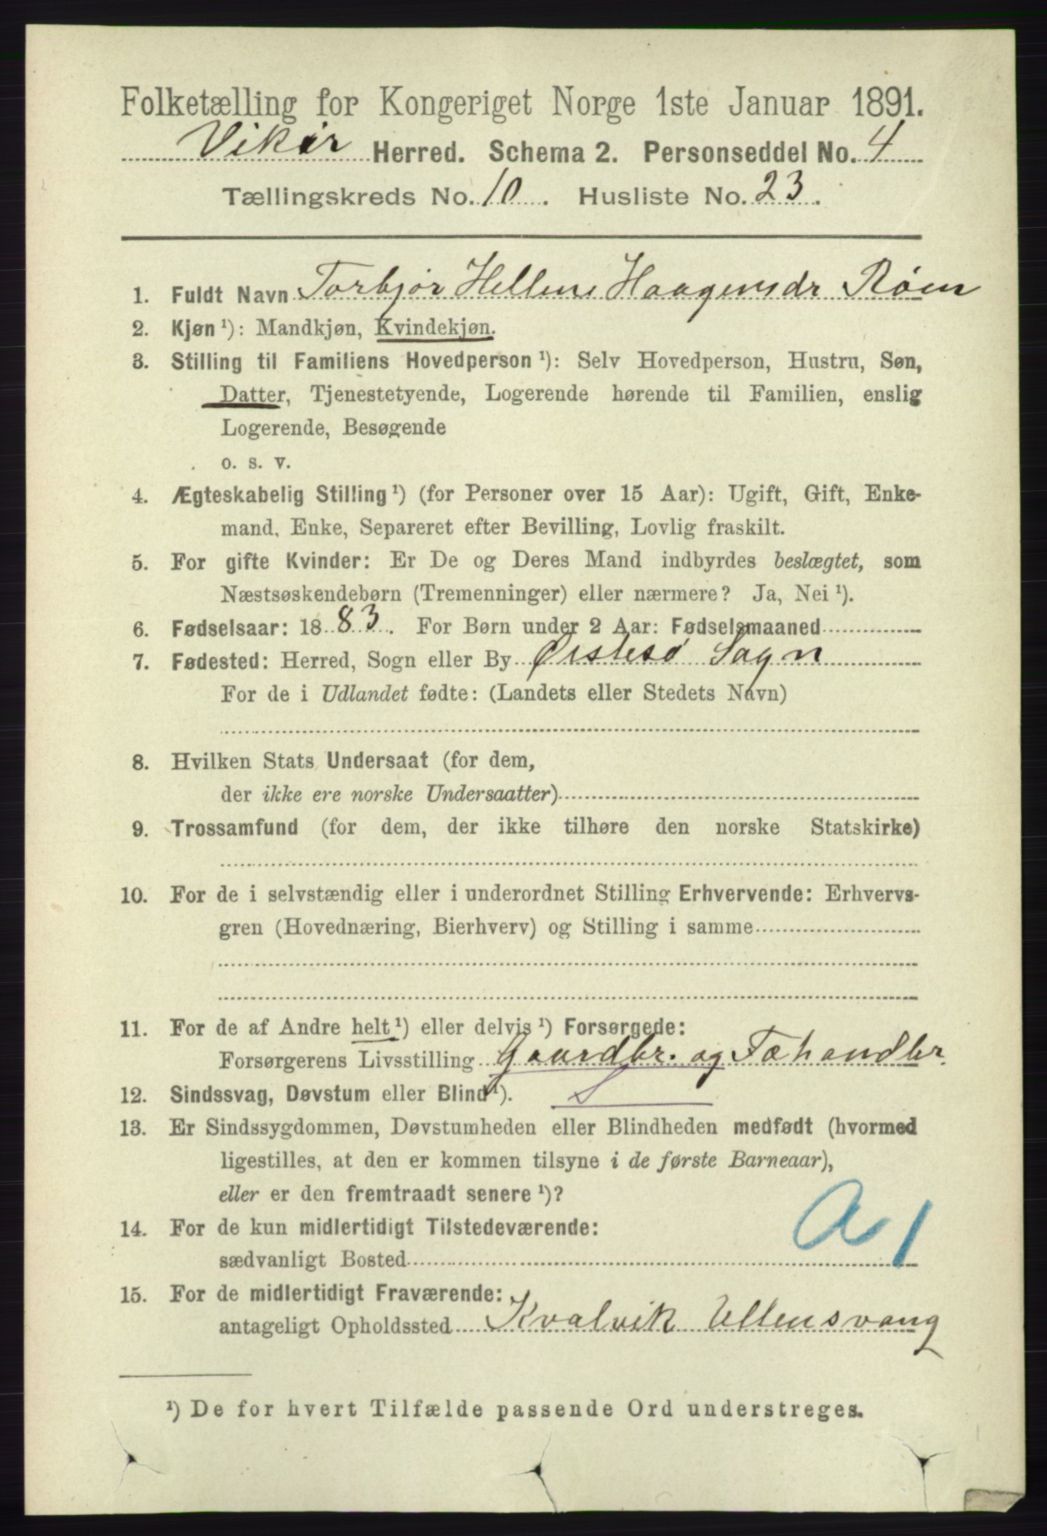 Folketælling for Kongeriget Norge 1ste Januar 1891.
Vikør Herred. Schema 2. Personseddel No. 4
Tællingskreds No. 10. Husliste No. 23.
1. Fuldt Navn Torbjør Hellene Haagensdr Røen
2. Kjøn ¹): Mandkjøn, Kvindekjøn.
3. Stilling til Familiens Hovedperson ¹): Selv Hovedperson, Hustru, Søn,
Datter, Tjenestetyende, Logerende hørende til Familien, enslig
Logerende, Besøgende
o. s. v.
4. Ægteskabelig Stilling ¹) (for Personer over 15 Aar): Ugift, Gift, Enke-
mand, Enke, Separeret efter Bevilling, Lovlig fraskilt.
5. For gifte Kvinder: Er De og Deres Mand indbyrdes beslægtet, som
Næstsøskendebørn (Tremenninger) eller nærmere? Ja, Nei ¹).
6. Fødselsaar: 1883. For Børn under 2 Aar: Fødselsmaaned
7. Fødested: Herred, Sogn eller By Østesø Sogn
For de i Udlandet fødte: (Landets eller Stedets Navn)
8. Hvilken Stats Undersaat (for dem,
der ikke ere norske Undersaatter)
9. Trossamfund (for dem, der ikke tilhøre den norske Statskirke)
10. For de i selvstændig eller i underordnet Stilling Erhvervende: Erhvervs-
gren (Hovednæring, Bierhverv) og Stilling i samme
11. For de af Andre helt ¹) eller delvis ¹) Forsørgede:
Forsørgerens Livsstilling Gaardbr. og Fæhandler
12. Sindssvag, Døvstum eller Blind ¹).
13. Er Sindssygdommen, Døvstumheden eller Blindheden medfødt (hvormed
ligestilles, at den er kommen tilsyne i de første Barneaar),
eller er den fremtraadt senere ¹)?
14. For de kun midlertidigt Tilstedeværende:
sædvanligt Bosted
A 1
15. For de midlertidigt Fraværende:
antageligt Opholdssted Kvalvik Ullensvang
¹) De for hvert Tilfælde passende Ord understreges.